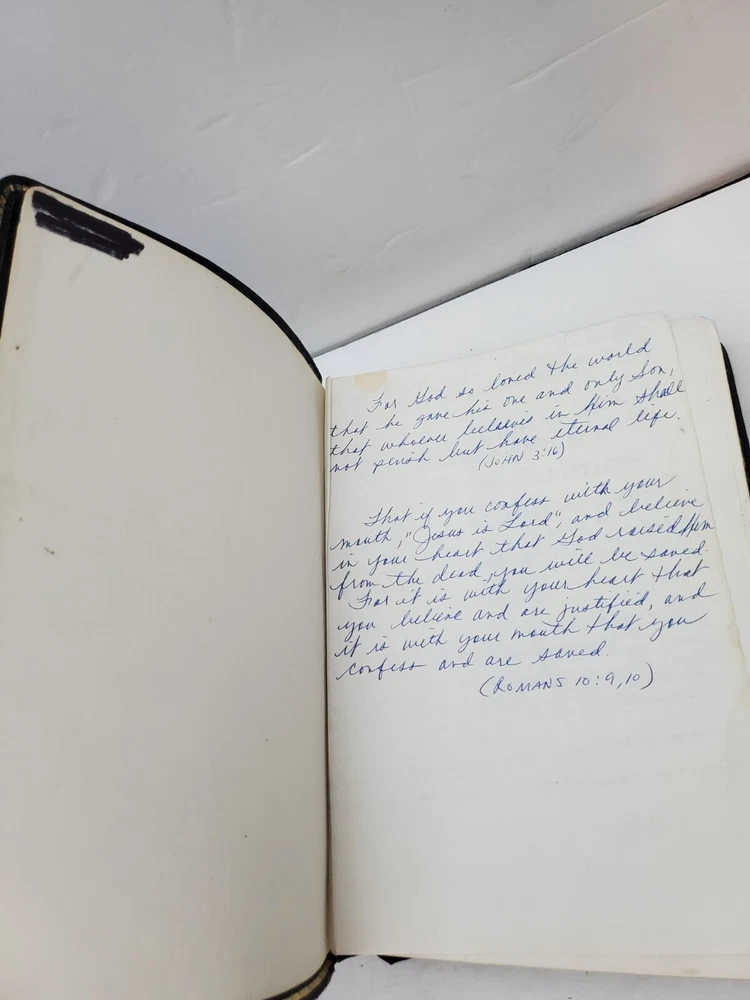 For God so loved the world
that he gave his one and only Son,
that whoever believes in Him shall
not perish but have eternal life.
(JOHN 3:16)
That if you confess with your
mouth, "Jesus is Lord", and believe
in your heart that God raised Him
from the dead, you will be saved.
For it is with your heart that
you believe and are justified, and
it is with your mouth that you
confess and are saved.
(ROMANS 10:9,10)